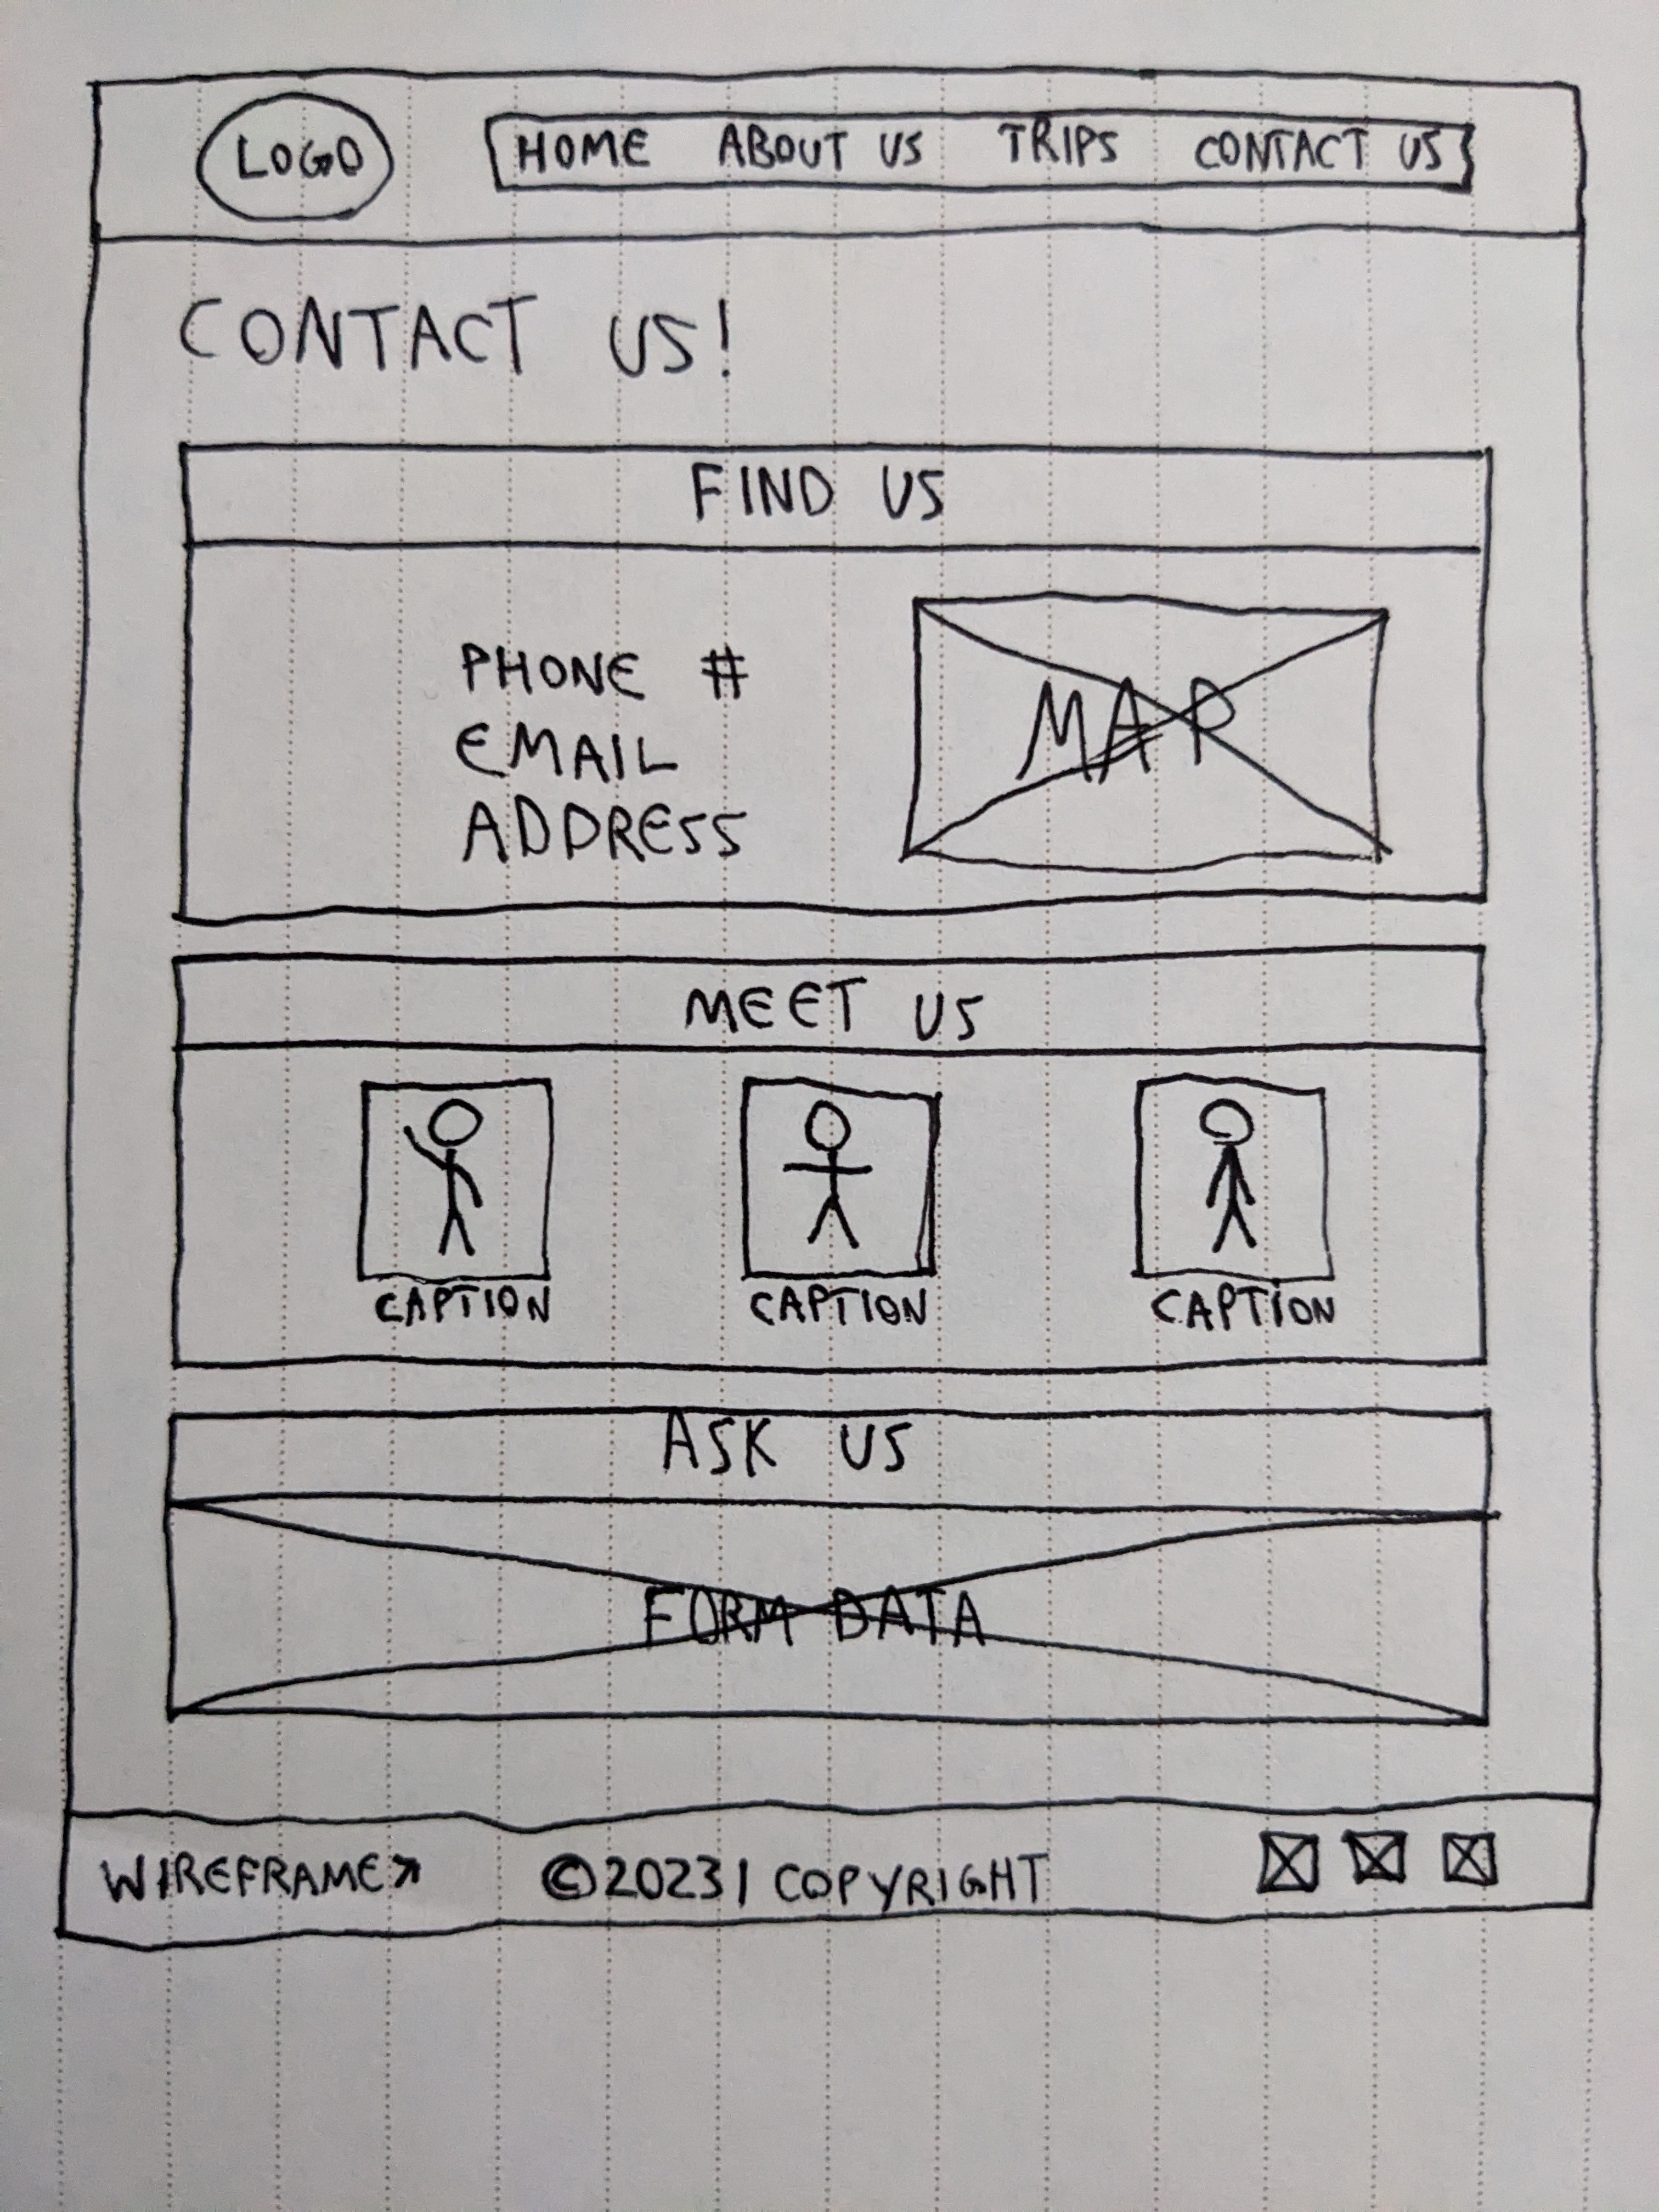 LOGO HOME ABOUT US TRIPS CONTACT US
CONTACT US!
FIND US
PHONE #
EMAIL
ADDRESS
MAP
MEET US
CAPTION CAPTION CAPTION
ASK US
FORM DATA
WIREFRAME↗ ©2023 | COPYRIGHT